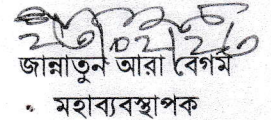 জান্নাতুন আরা বেগম
মহাব্যবস্থাপক